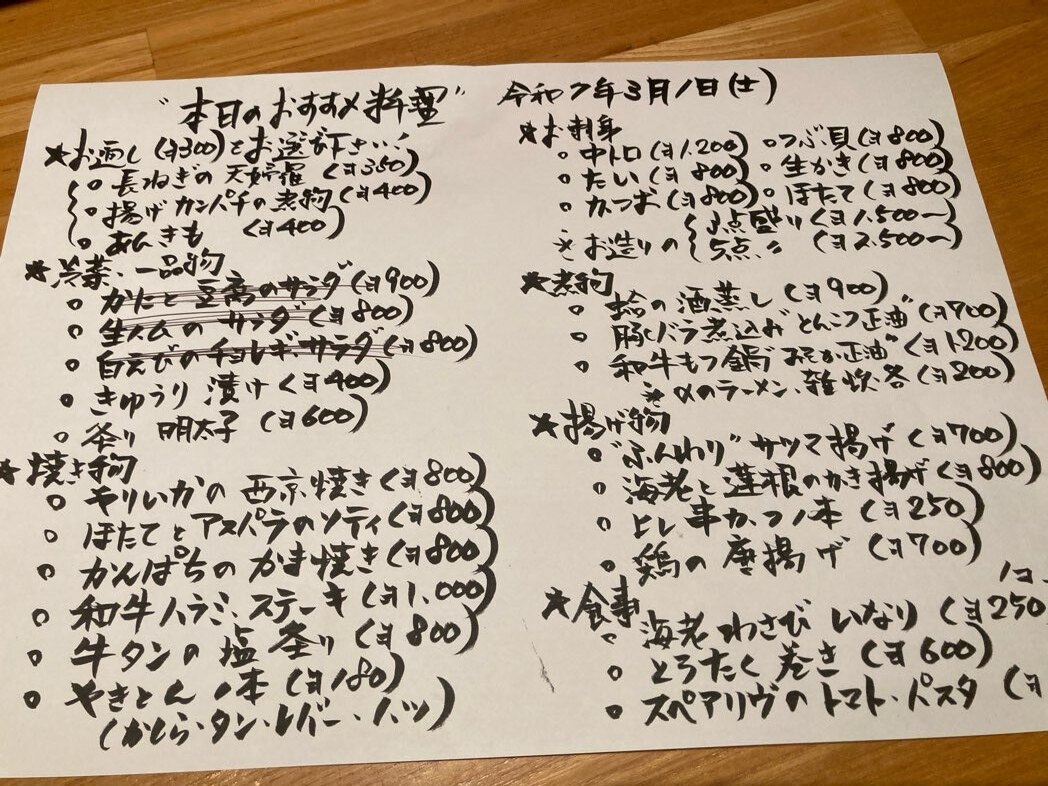 "本日のおすすめ料理"
令和7年3月1日(土)
★お通し(¥300)をお選び下さい!
○長ねぎの天ぷら(¥350)
○揚げカンパチの煮物(¥400)
○あんきも(¥400)
★冷菜、一品物
○かにと豆腐のサラダ(¥900)
○生ハムのサラダ(¥800)
○白えびのチョレギ・サラダ(¥800)
○きゅうり漬け(¥400)
○炙り明太子(¥600)
★焼き物
○やりいかの西京焼き(¥800)
○ほたてとアスパラのソティ(¥800)
○かんぱちのかま焼き(¥800)
○和牛ハラミ、ステーキ(¥1,000)
○牛タンの塩釜り(¥800)
○やきとん1本(¥180)
(かしら・タン・レバー・ハツ)
★お刺身
○中トロ(¥1,200) ○つぶ貝(¥800)
○たい(¥800) ○生かき(¥800)
○かつお(¥800) ○ほたて(¥800)
※お造りの 3点盛り(¥1,500〜)
5点〃(¥2,500〜)
★煮物
○蛤の酒蒸し(¥900)
○豚バラ煮込み"とんこつ正油"(¥700)
○和牛もつ鍋"みそか正油"(¥1,200)
※〆のラーメン、雑炊、各(¥200)
★揚げ物
○"ふんわり"サツマ揚げ(¥700)
○海老と蓮根のかき揚げ(¥800)
○ヒレ串かつ1本(¥250)
○鶏の唐揚げ(¥700)
★食事
○海老わさびいなり 1コ(¥250
○とろたく巻き(¥600)
○スペアリヴのトマト・パスタ(¥